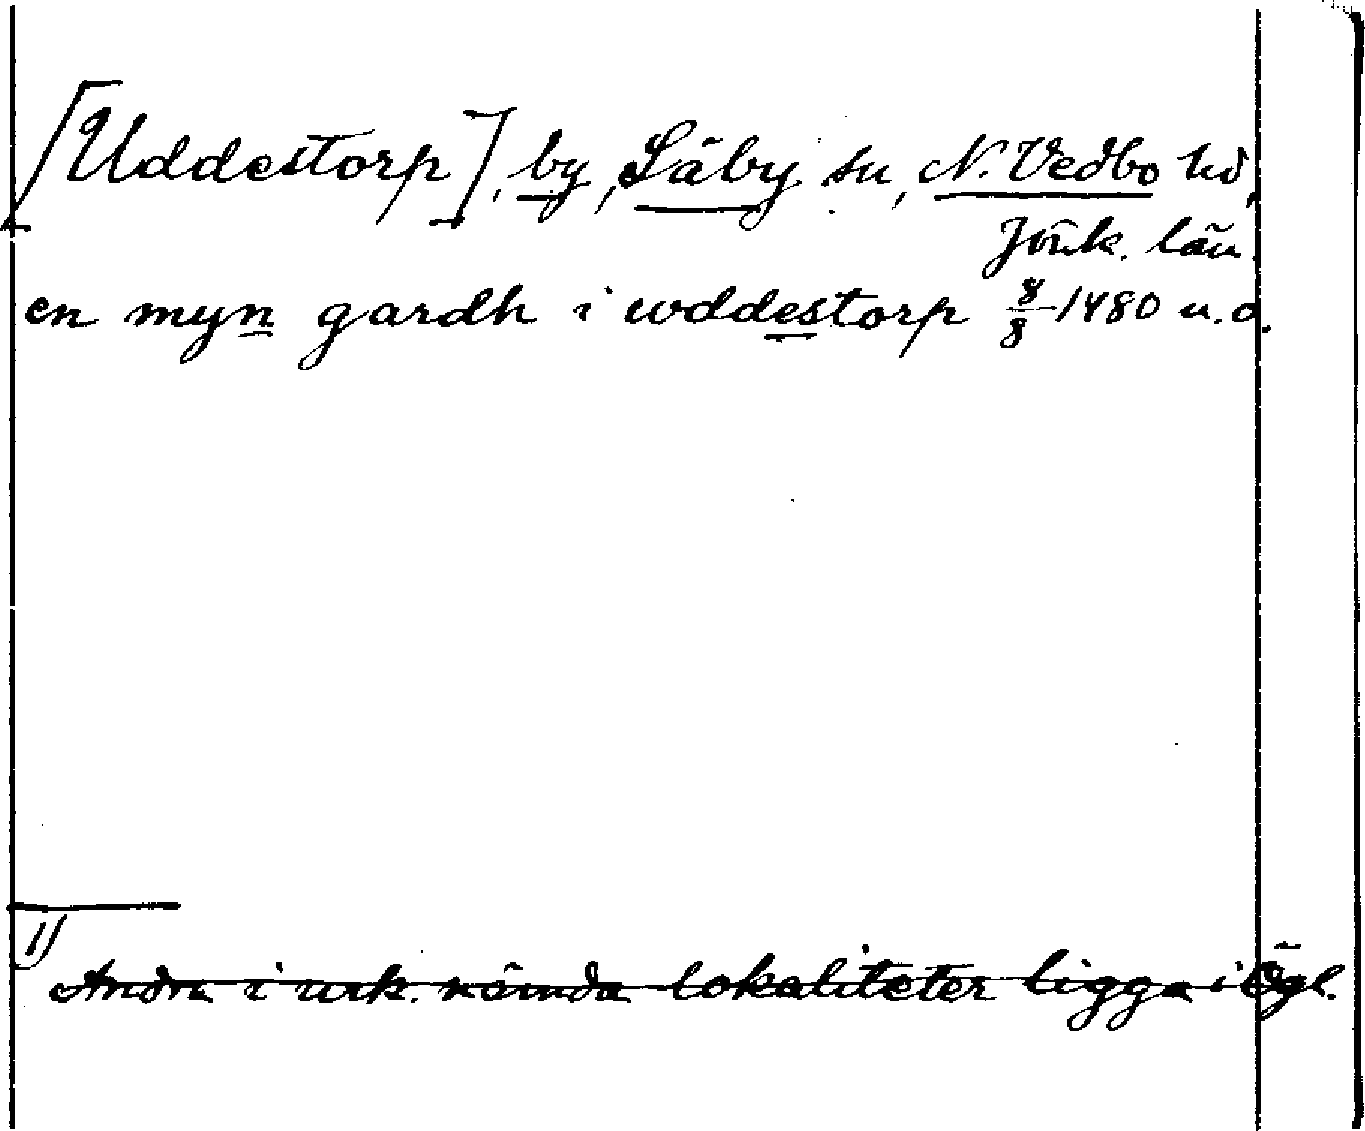 [Uddestorp], by, Säby sn, N. Vedbo hd,
Jönk. län.
en myn gardh i wddestorp 8/8 1480 u. o.
1)
Andra i urk. nämda lokaliteter ligga i Ögl.